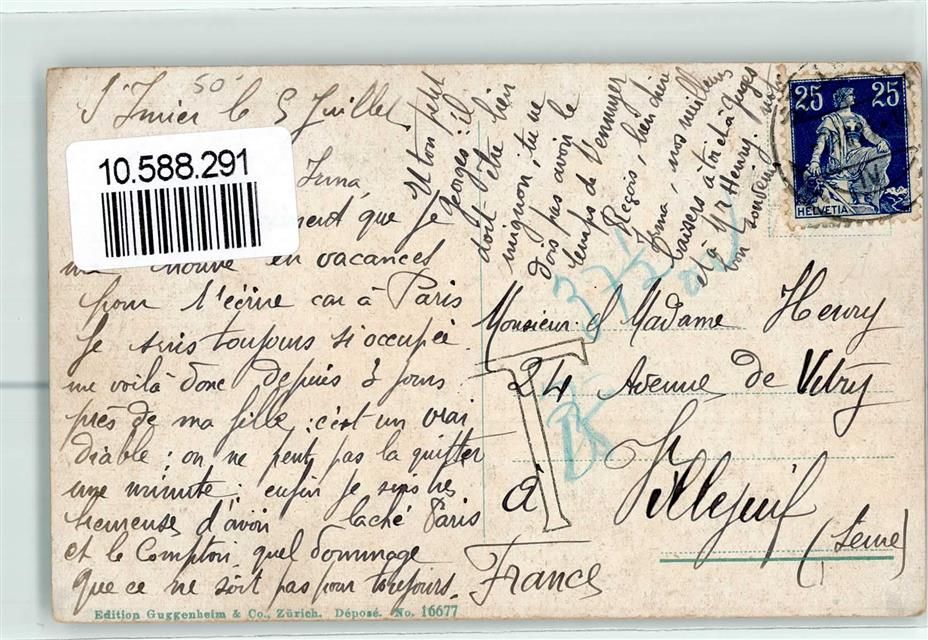 St Imier le 5 Juillet
50
10.588.291
Irma,
que je
me trouve en vacances
pour t'écrire car à Paris
je suis toujours si occupée.
me voilà donc depuis 3 jours
près de ma fille : c'est un vrai
diable : on ne peut pas la quitter
une minute : enfin je suis très
heureuse d'avoir laché Paris
et le Comptoir quel dommage
que ce ne soit pas pour toujours.
Et ton petit
Georges : il
doit être bien
mignon ; tu ne
dois pas avoir le
temps de t'ennuyer
Reçois, bien chère
Irma, nos meilleurs
baisers à toi et à Georges
et à Mr Henry.
bon souvenir
25 25
HELVETIA
T
Monsieur et Madame Henry
24 Avenue de Vitry
à Villejuif
(Seine)
France
Edition Guggenheim & Co., Zürich. Déposé. No. 16677